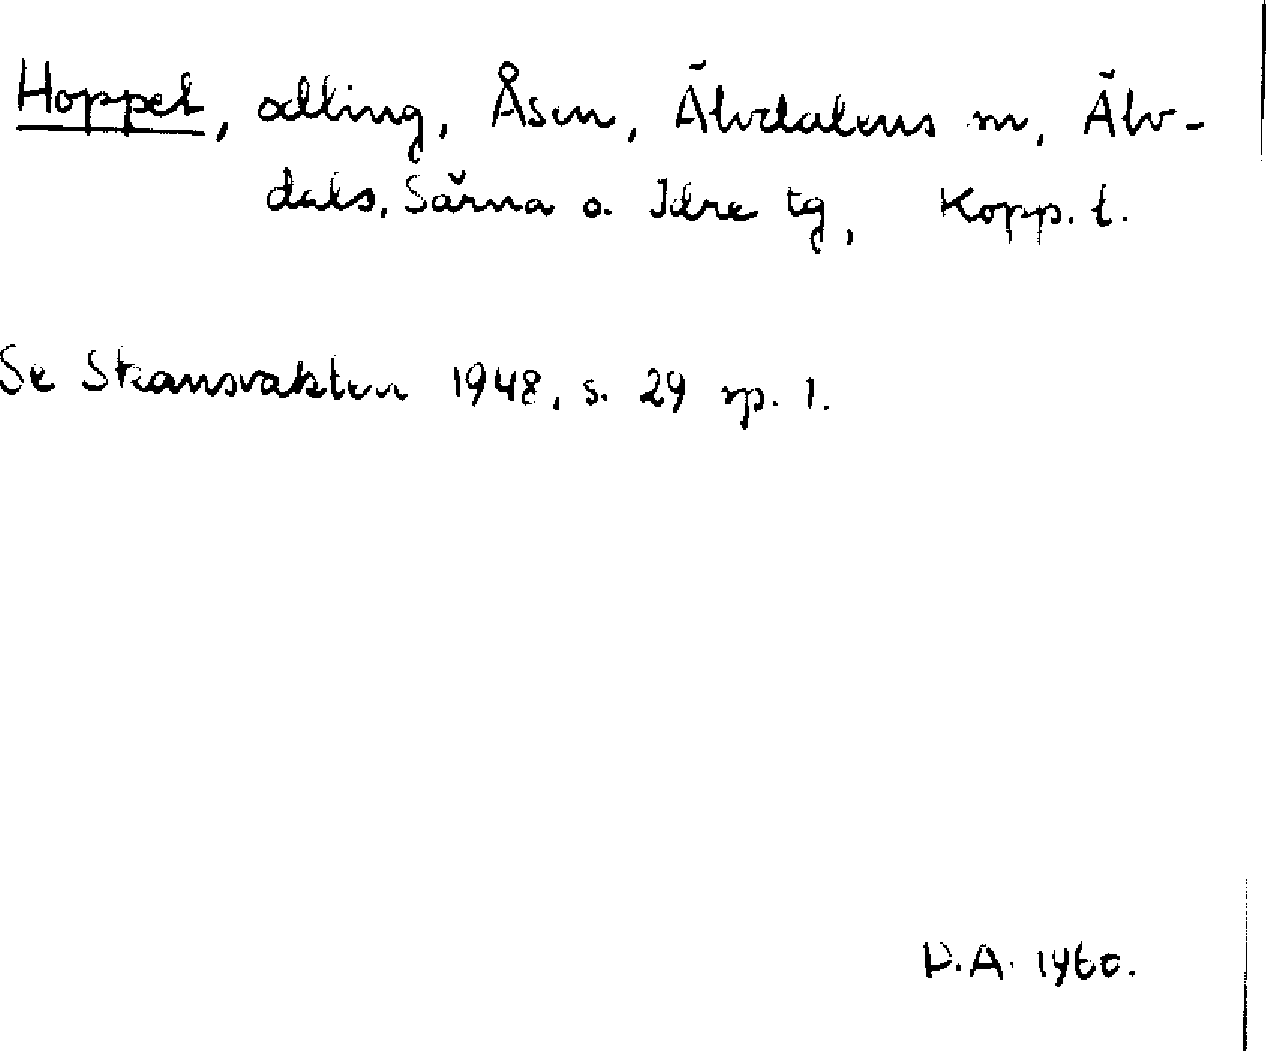 Hoppet, odling, Åsen, Älvdalens m, Älv-
dals, Särna o. Idre tg, Kopp. l.
Se Skansvakten 1948, s. 29 sp. 1.
D.A. 1960.